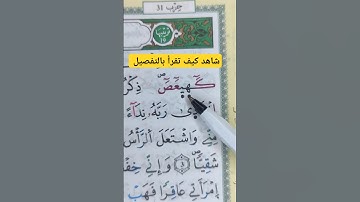 حزب 31
شاهد كيف تقرأ بالتفصيل
كٓهيعٓصٓ ذِكْرُ
رَبَّهُ نِدَآءً
مِنِّي وَاشْتَعَلَ الرَّأْسُ
شَقِيًّا ٤ وَإِنِّي خِفْ
امْرَأَتِي عَاقِرًا فَهَبْ